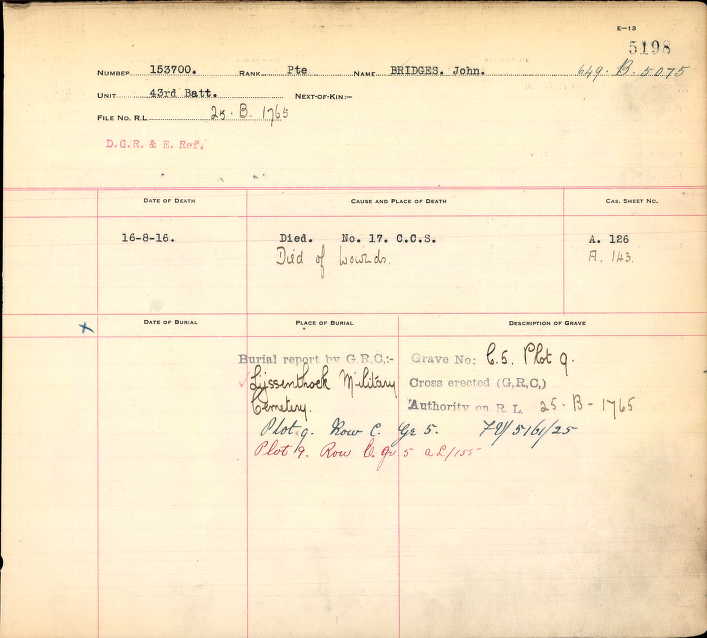 E—13
5198
NUMBER 153700. RANK Pte NAME BRIDGES. John. 649. B. 5075
UNIT 43rd Batt. NEXT-OF-KIN:—
FILE NO. R.L 25. B. 1765
D.G.R. & E. Ref.
DATE OF DEATH CAUSE AND PLACE OF DEATH CAS. SHEET NO.
16-8-16. Died. No. 17. C.C.S. A. 126
Died of wounds. A. 143.
x DATE OF BURIAL PLACE OF BURIAL DESCRIPTION OF GRAVE
Burial report by G.R.C.:- Grave No: C.5. Plot 9.
Lijssenthoek Military Cross erected (G.R.C.)
Cemetery. Authority on R.L 25-B-1765
Plot 9. Row C. Gr 5. 5161/25
Plot 9. Row C. Gr 5 a.L/155